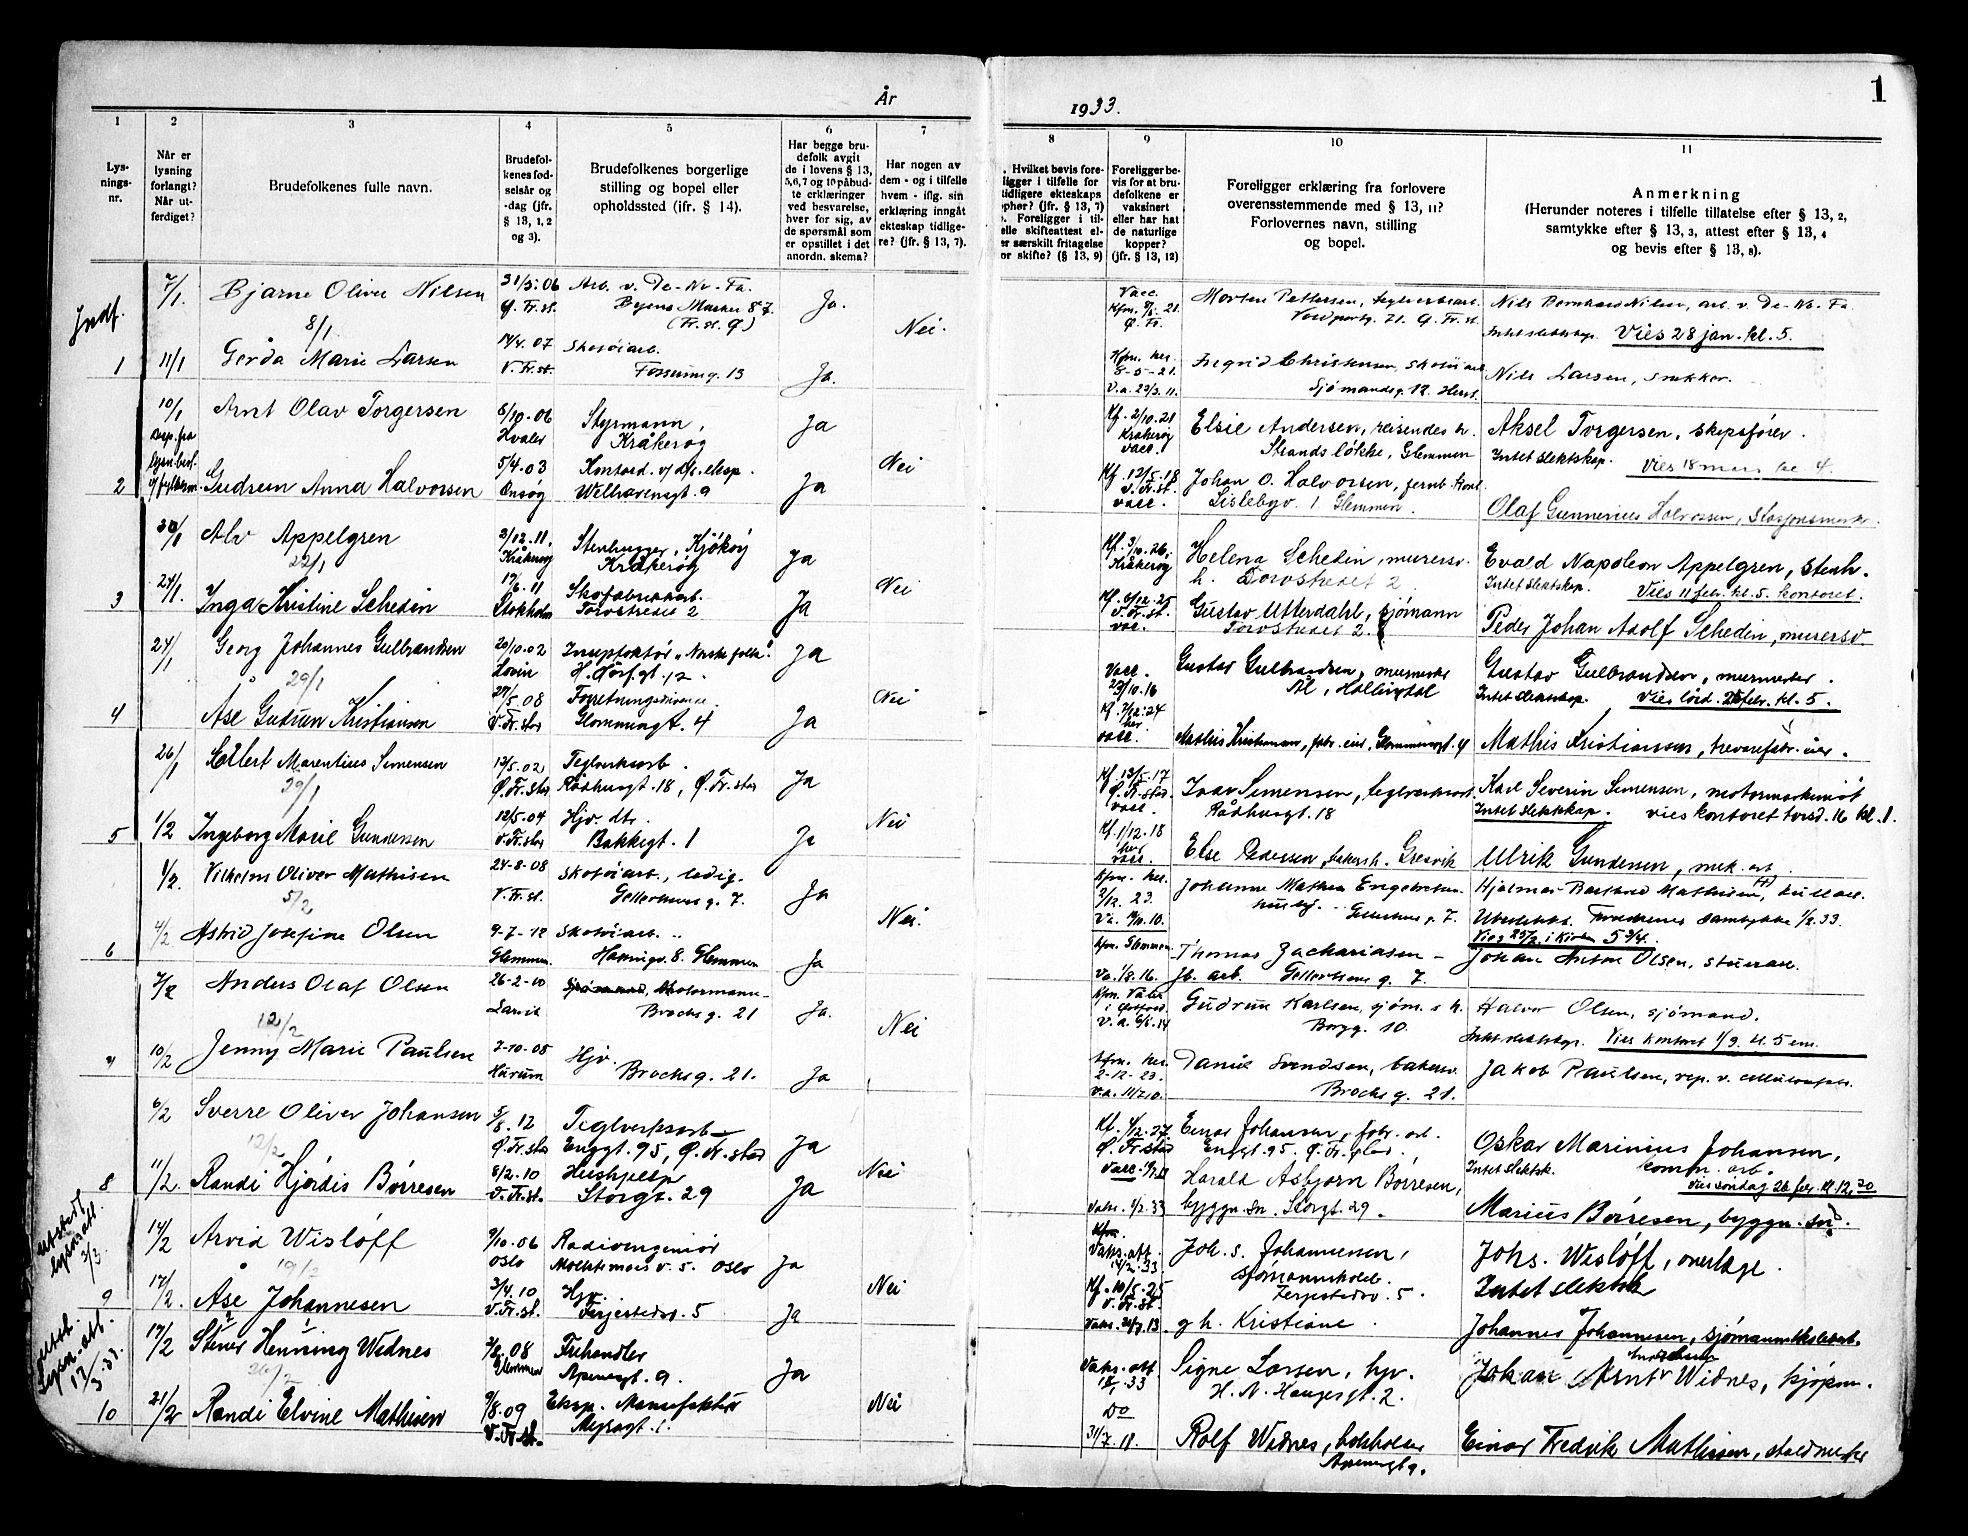 År
1933.
1
1
2
3
4
5
6
7
8
9
10
11
Lys-
nings-
nr.
Når er
lysning
forlangt?
Når ut-
ferdiget?
Brudefolkenes fulle navn.
Brudefol-
kenes fød-
selsår og
-dag (jfr.
§ 13, 1, 2
og 3).
Brudefolkenes borgerlige
stilling og bopel eller
opholdssted (jfr. § 14).
Har begge bru-
defolk avgit
de i lovens § 13,
5,6,7 og 10 påbud-
te erklæringer
ved besvarelse,
hver for sig, av
de spørsmål som
er opstillet i det
anordn. skema?
Har nogen av
dem - og i tilfelle
hvem - iflg. sin
erklæring inngått
ekteskap tidlige-
re? (jfr. § 13, 7).
Hvilket bevis fore-
ligger i tilfelle for
tidligere ekteskaps
ophør? (jfr. § 13, 7)
Foreligger i til-
felle skifteattest el-
ler særskilt fritagelse
for skifte? (§ 13, 9)
Foreligger be-
vis for at bru-
defolkene er
vaksinert
eller har hat
de naturlige
kopper?
(jfr. § 13, 12)
Foreligger erklæring fra forlovere
overensstemmende med § 13, 11?
Forlovernes navn, stilling
og bopel.
Anmerkning
(Herunder noteres i tilfelle tillatelse efter § 13, 2,
samtykke efter § 13, 3, attest efter § 13, 4
og bevis efter § 13, 8).
7/1. Bjarne Oliver Nilsen 31/5.06 Arb. v. De-No-Fa. Ja.
Ø. Fr.st. Byens Marker 87. (Fr.st. Ø)
8/1
Nei.
Morten Pettersen, teglverksarb.
Nils Bernhard Nilsen, arb. v. De-No-Fa.
Intet slektskap. Vies 28 jan. kl. 5.
1 11/1 Gerda Marie Larsen 14/4.07 Skotøiarb. Ja.
V. Fr.st. Fossumg. 13
Kfm. her. 8-5-21. V.a. 22/3.11.
Ingrid Christensen, skotøiarb.
Sjømandsg. 12.
Nils Larsen, snekker.
10/1 Arnt Olav Torgersen 8/10.06 Styrmann, Ja
Hvaler Kråkerøy
Nei
Kf. 2/10.21 Kråkerøy vacc.
Elsie Andersen, reisendes h.
Strands løkke, Glemmen
Aksel Torgersen, skipsfører.
Intet slektskap. Vies 18 mars kl 4.
2 Gudrun Anna Halvorsen 5/4.03 Kontord. v/ dps. eksp. Ja
Onsøy Welhavensgt. 9
Kf. 12/5.18 V. Fr.st. vacc.
Johan O. Halvorsen,
Lislebyv. 1. Glemmen.
Olaf Gunnerius Halvorsen, stasjonsmester.
20/1 Alv Appelgren 2/12.11. Stenhugger, Kjøkøy Ja
22/1 Kråkerøy Kråkerøy
Nei
Kf. 3/10.26. Kråkerøy
Helena Schedin, murersv. h. Torvstredet 2
Evald Napoleon Appelgren, stenh.
Intet slektskap. Vies 11 febr. kl. 5. kontoret.
3 24/1. Inga Kristine Schedin 17/6.11 Skofabrikkarb. Ja
Stokholm Torvstredet 2
Kf. 6/12.25 V. Fr.st. vac.
Gustav Utterdahl, sjømann
Torvstredet 2.
Peder Johan Adolf Schedin, murersv.
24/1 Georg Johannes Gulbrandsen 20/10.02 Inspektør „Norske folk“. Ja
29/1
Nei
Vacc. 23/10.16
Gustav Gulbrandsen, murmester
Ål, Hallingdal
Gustav Gulbrandsen, murmester.
Intet slektskap. Vies lørd. 25 febr. kl. 5.
4 Åse Gudrun Kristiansen 27/5.08 Forretningsdrivende. Ja
V.Fr.stad Glommengt. 4
Kf. 7/12.24 her vacc.
Mathis Kristiansen, fabr. eier, Glommengt. 4
Mathis Kristiansen, trevarefabr. eier.
26/1 Marentius Simensen 13/5.02 Teglverksarb. Ja
Ø.Fr.stad Rådhusgt. 18, Ø.Fr.stad
29/1
Nei
Kf. 13/5.17 Ø.Fr.stad vacc.
Ivar Simensen, teglverksarb.
Rådhusgt. 18
Karl Severin Simensen, motormaskinist
Intet slektskap. vies kontoret torsd. 16 kl. 1.
5 1/2 Ingeborg Marie Gundersen 12/5.04 Hjv. dtr. Ja
V.Fr.stad Bakkegt. 1
Kf. 1/12.18 her vacc.
Else Pedersen, bakerh. Gresvik
Ulrik Gundersen, mek. arb.
1/2. Vilhelm Oliver Mathisen 24-8-08 Skotøiarb., ledig. Ja
V.Fr.st. Gellertsens g. 7.
5/2
Nei.
Kfm. her. 3/12 23.
Johanne Mathea Engebretsen
Gellertsens g. 7.
Hjalmar Bastrad Mathisen,
Ubeslektet. Foreldrenes samtykke 1/2.33.
Vies 25/2 i kirken 5 3/4.
6 4/2 Astrid Josefine Olsen 9-7-12 Skotøiarb. Ja
Glemmen. Haningv. 8. Glemmen
Kfm. Glemmen. Va. 1/8.16.
Thomas Zachariasen -
Jb. arb. Gellertsens g. 7.
Johan Anton Olsen, stuerarb.
7/2 Anders Olaf Olsen 26-2-10 Motormann- Ja.
Larvik Brochs g. 21
12/2
Nei
Gudrun Karlsen, sjøm. s h.
Borgg. 10.
Halvor Olsen, sjømand.
Intet slektskap. Vies kontoret 1/3. kl. 5 em.
7 10/2 Jenny Marie Paulsen 7-10-08 Hjv. Ja
Hurum Brochs g. 21.
Kfm. her. 2-12-23. v.a. 11/7.10.
Danie Svendsen, bakersv.
Brochs g. 21.
Jakob Paulsen, rep. v. cellulosefabr.
6/2 Sverre Oliver Johansen 5/8.12 Teglverksarb Ja
Ø.Fr.stad Enggt. 95, Ø.Fr.stad
12/2
Nei
Kf. 4/12.27 Ø.Fr.stad vacc.
Einar Johansen, fabr. arb.
Enggt. 95. Ø.Fr.stad.
Oskar Marinius Johansen,
Intet slektsk. komm. arb.
Vies søndag 26 febr. kl. 12,30
8 11/2. Randi Hjørdis Børresen 8/2.10 Hushjelp Ja
V.Fr.st. Storgt. 29
Vaks. 1/2.33
Harald Asbjørn Børresen,
byggm. sn. Storgt. 29.
Marius Børresen, byggm. sn.
utstedt lysn.att. 3/3
14/2 Arvid Wisløff 9/10.06 Radioingeniør Ja
Oslo v. 5. Oslo
19/2
Nei
Vaks.att. 14/2.33.
Joh. s. Johannesen,
sjømannskoleb.
Ferjestedsv. 5.
Johs. Wisløff, overlege.
Intet slektsk
9 17/2. Åse Johannesen 3/4.10 Hjv. Ja
V.Fr.st. Ferjestedsv. 5
Kf. 10/5.25 V.Fr.st.
g h. Kristiane.
Johannes Johannesen, sjømannskolebest.
utsted. lysn.-att. 17/3.33.
17/2 Stener Henning Widnes 3/2.08 Frihandler Ja
Glemmen Apenesgt. 9.
26/2
Nei
Vaks.att
Signe Larsen, hjv.
H. N. Haugesgt. 2.
Johan Arnt Widnes, kjøpm.
10 21/2 Randi Elvine Mathisen 9/8.09 Eksp. Manufaktur
V.Fr.st. Myragt. 1.
Do
31/7.18.
Rolf Widnes, bokholder
Apenesgt 9.
Einar Fredrik Mathisen, staldmester